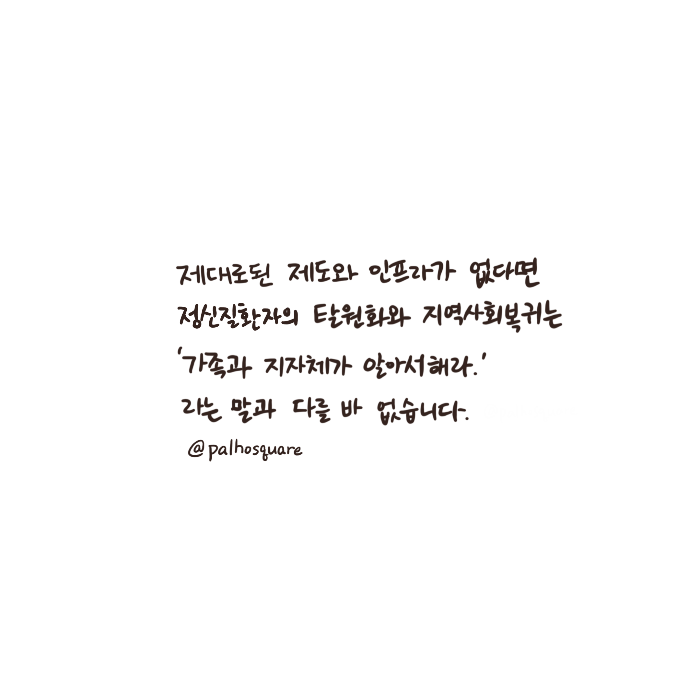 제대로된 제도와 인프라가 없다면
정신질환자의 탈원화와 지역사회복귀는
'가족과 지자체가 알아서해라.'
라는 말과 다를 바 없습니다.
@palhosquare